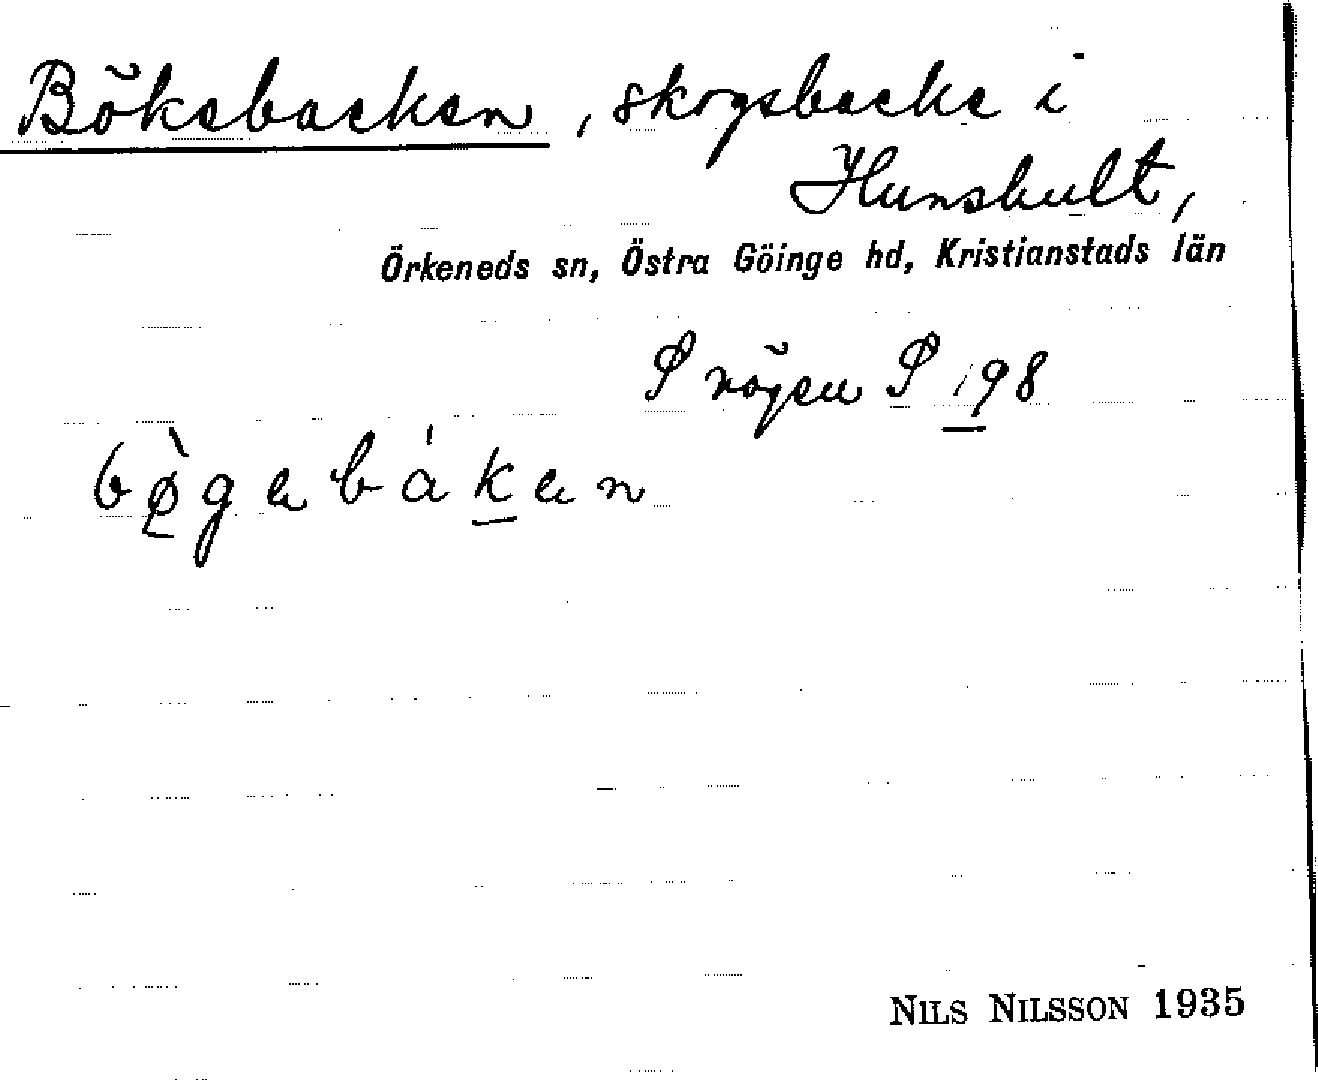 Bökebacken, skogsbacke i
Hunshult,
Örkeneds sn, Östra Göinge hd, Kristianstads län
S vägen S 198
bø̀gabákan
NILS NILSSON 1935